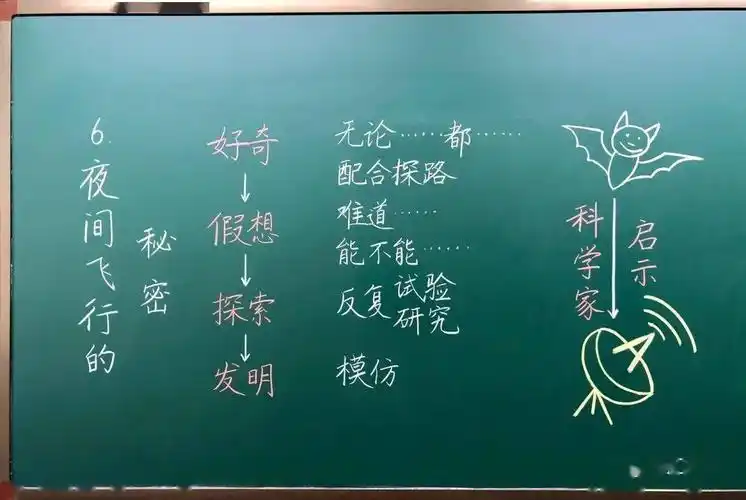 6.夜间飞行的
秘密
好奇
假想
探索
发明
无论……都……
配合探路
难道……
能不能……
反复试验
研究
模仿
科学家
启示